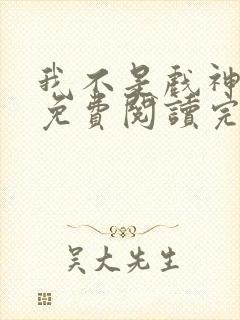 我不是戲神
免費閱讀完
吴大先生